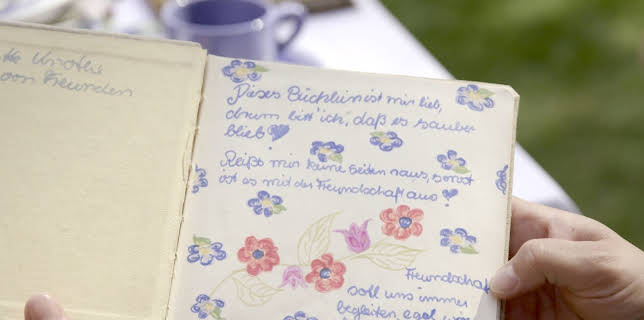 von Freunden
Dieses Büchlein ist mir lieb,
drum bitt' ich, daß es sauber
bleib!
Reißt mir keine Seiten raus, sonst
ist es mit der Freundschaft aus!
Freundschaf
soll uns immer
begleiten, egal wo